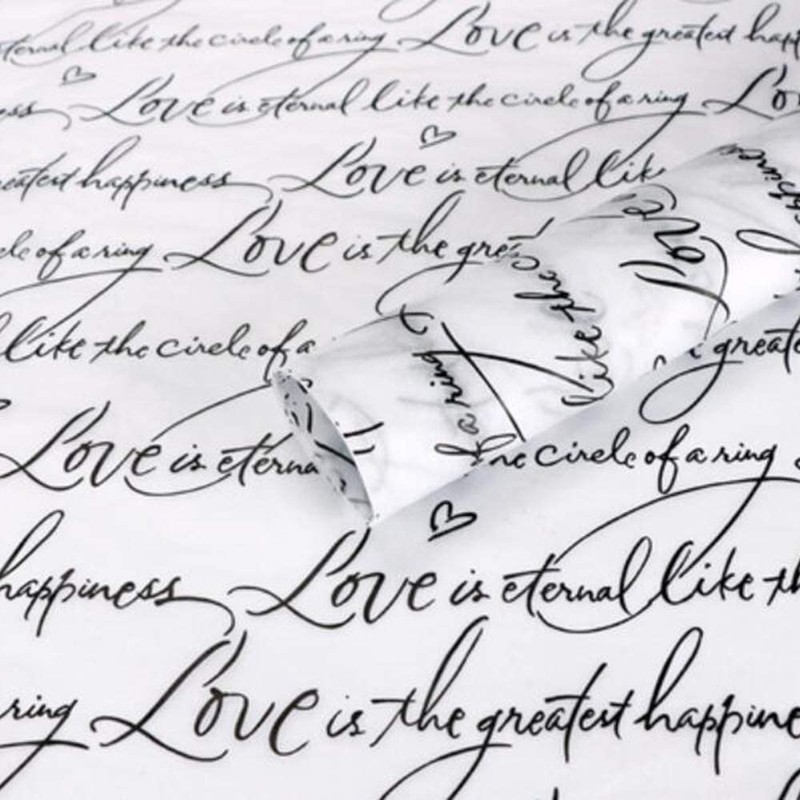 eternal like the circle of a ring Love is the greatest happ
ess Love is eternal like the circle of a ring Lo
eatest happiness Love is eternal lik
cle of a ring Love is the gre
like the circle of a
greate
Love is eterna
he circle of a ring
like the
Love
a ring
happiness Love is eternal like th
ring Love is the greatest happine